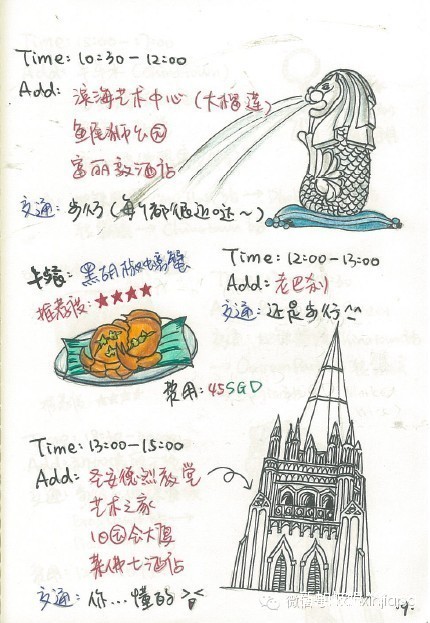 Time: 10:30-12:00
Add: 滨海艺术中心 (大榴莲)
鱼尾狮公园
富丽敦酒店
交通: 步行 (每个都很近哒~)
Time: 12:00-13:00
Add: 老巴刹
交通: 还是步行^^
黑胡椒螃蟹
推荐级: ★★★★
费用: 45SGD
Time: 13:00-15:00
Add: 圣安德烈教堂
艺术之家
旧国会大厦
莱佛士酒店
交通: 你...懂的 ><
微信号: